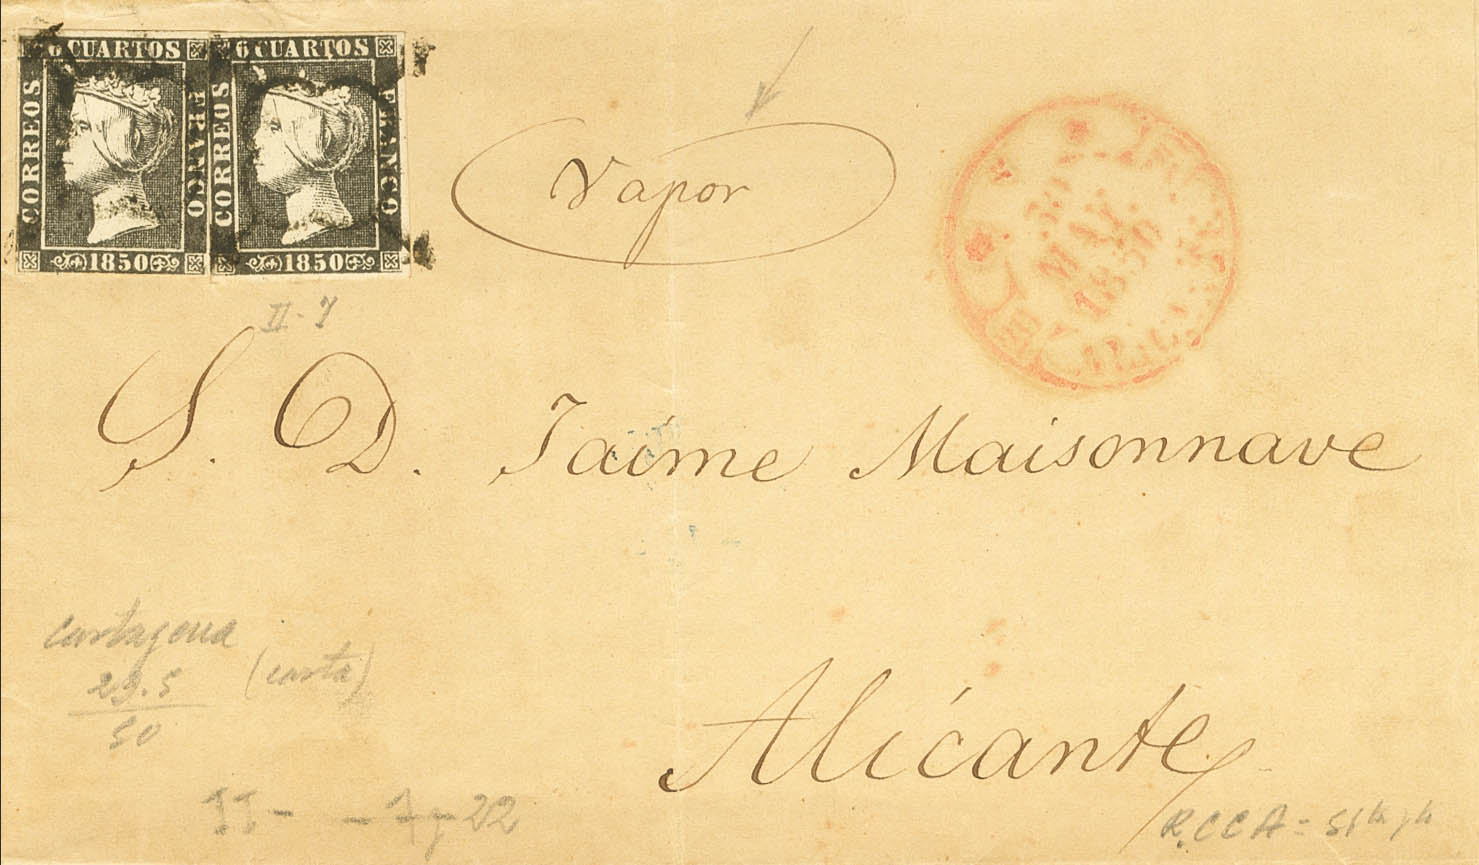 6 CUARTOS
CORREOS
FRANCO
1850
6 CUARTOS
CORREOS
FRANCO
1850
Vapor
30
MAY.
1850
II-7
S. D. Jaime Maisonnave
Cartagena
29.5
50
(carta)
Alicante
II- - 7 y 22
R.CCA =